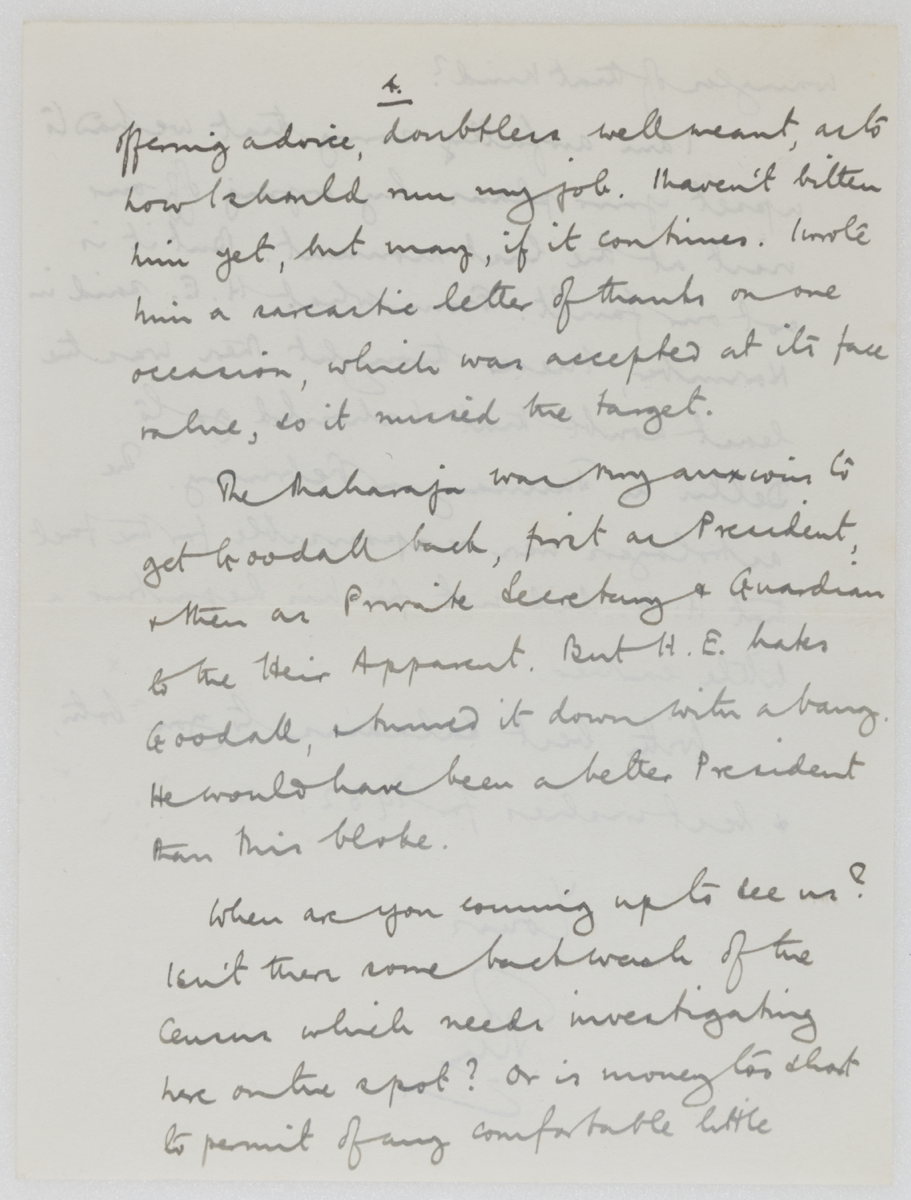 4.
offering advice, doubtless well meant, as to
how I should run my job. I haven't bitten
him yet, but may, if it continues. I wrote
him a sarcastic letter of thanks on one
occasion, which was accepted at its face
value, so it missed the target.
The Maharaja was very anxious to
get Goodall back, first as President,
& then as Private Secretary & Guardian
to the Heir Apparent. But H.E. hates
Goodall, & turned it down with a bang.
He would have been a better President
than this bloke.
When are you coming up to see us?
Isn't there some backwash of the
Census which needs investigating
here on the spot? Or is money too short
to permit of any comfortable little